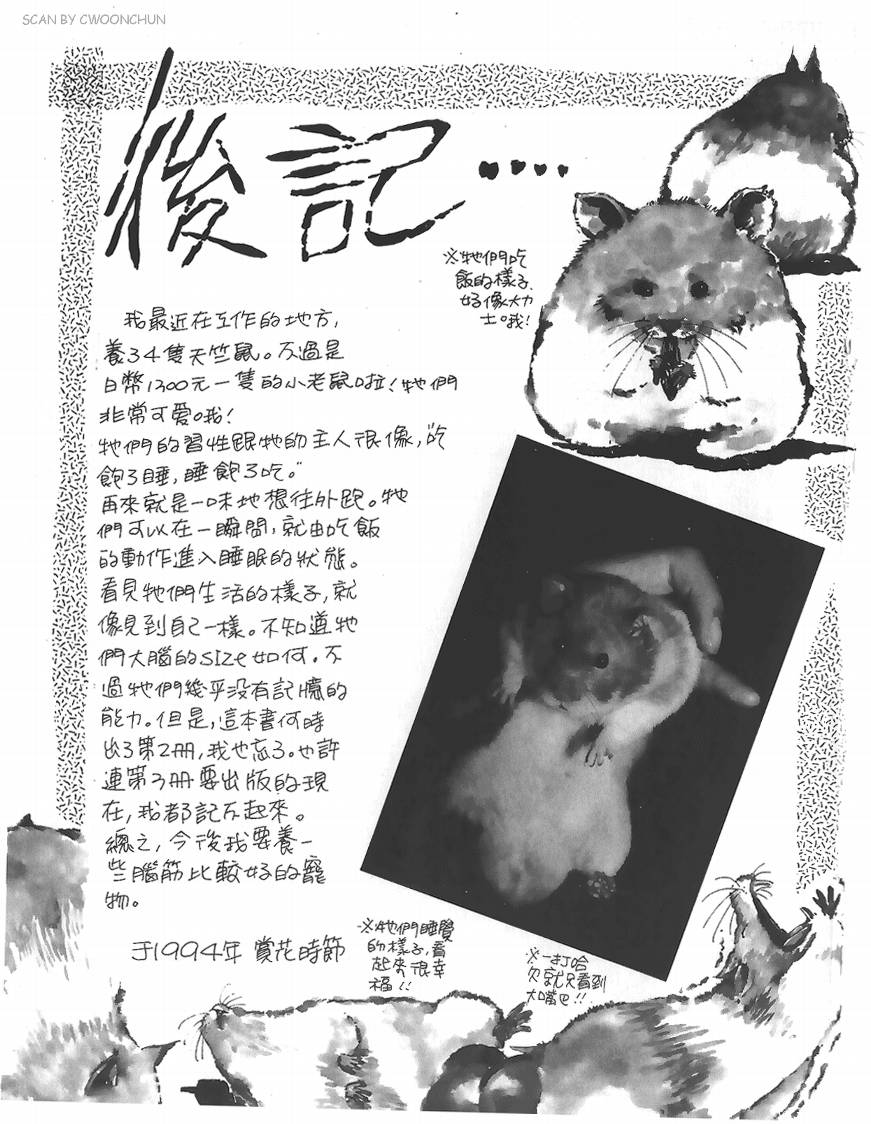 SCAN BY CWOONCHUN
後記····
※牠們吃
飯的樣子、
好像大力
士。哦!
我最近在工作的地方,
養了4隻天竺鼠。不過是
日幣1300元一隻的小老鼠啦!牠們
非常可愛。哦!
牠們的習性跟牠的主人很像,“吃
飽了睡,睡飽了吃。”
再來就是一味地想往外跑。牠
們可以在一瞬間,就由吃飯
的動作進入睡眠的狀態。
看見牠們生活的樣子,就
像見到自己一樣。不知道牠
們大腦的size如何。不
過牠們幾乎沒有記憶的
能力。但是,這本書何時
出了第2冊,我也忘了。也許
連第3冊要出版的現
在,我都記不起來。
總之,今後我要養一
些腦筋比較好的寵
物。
于1994年 賞花時節
※牠們睡覺
的樣子,看
起來很幸
福!!
※一打哈
欠就只看到
大嘴巴!!